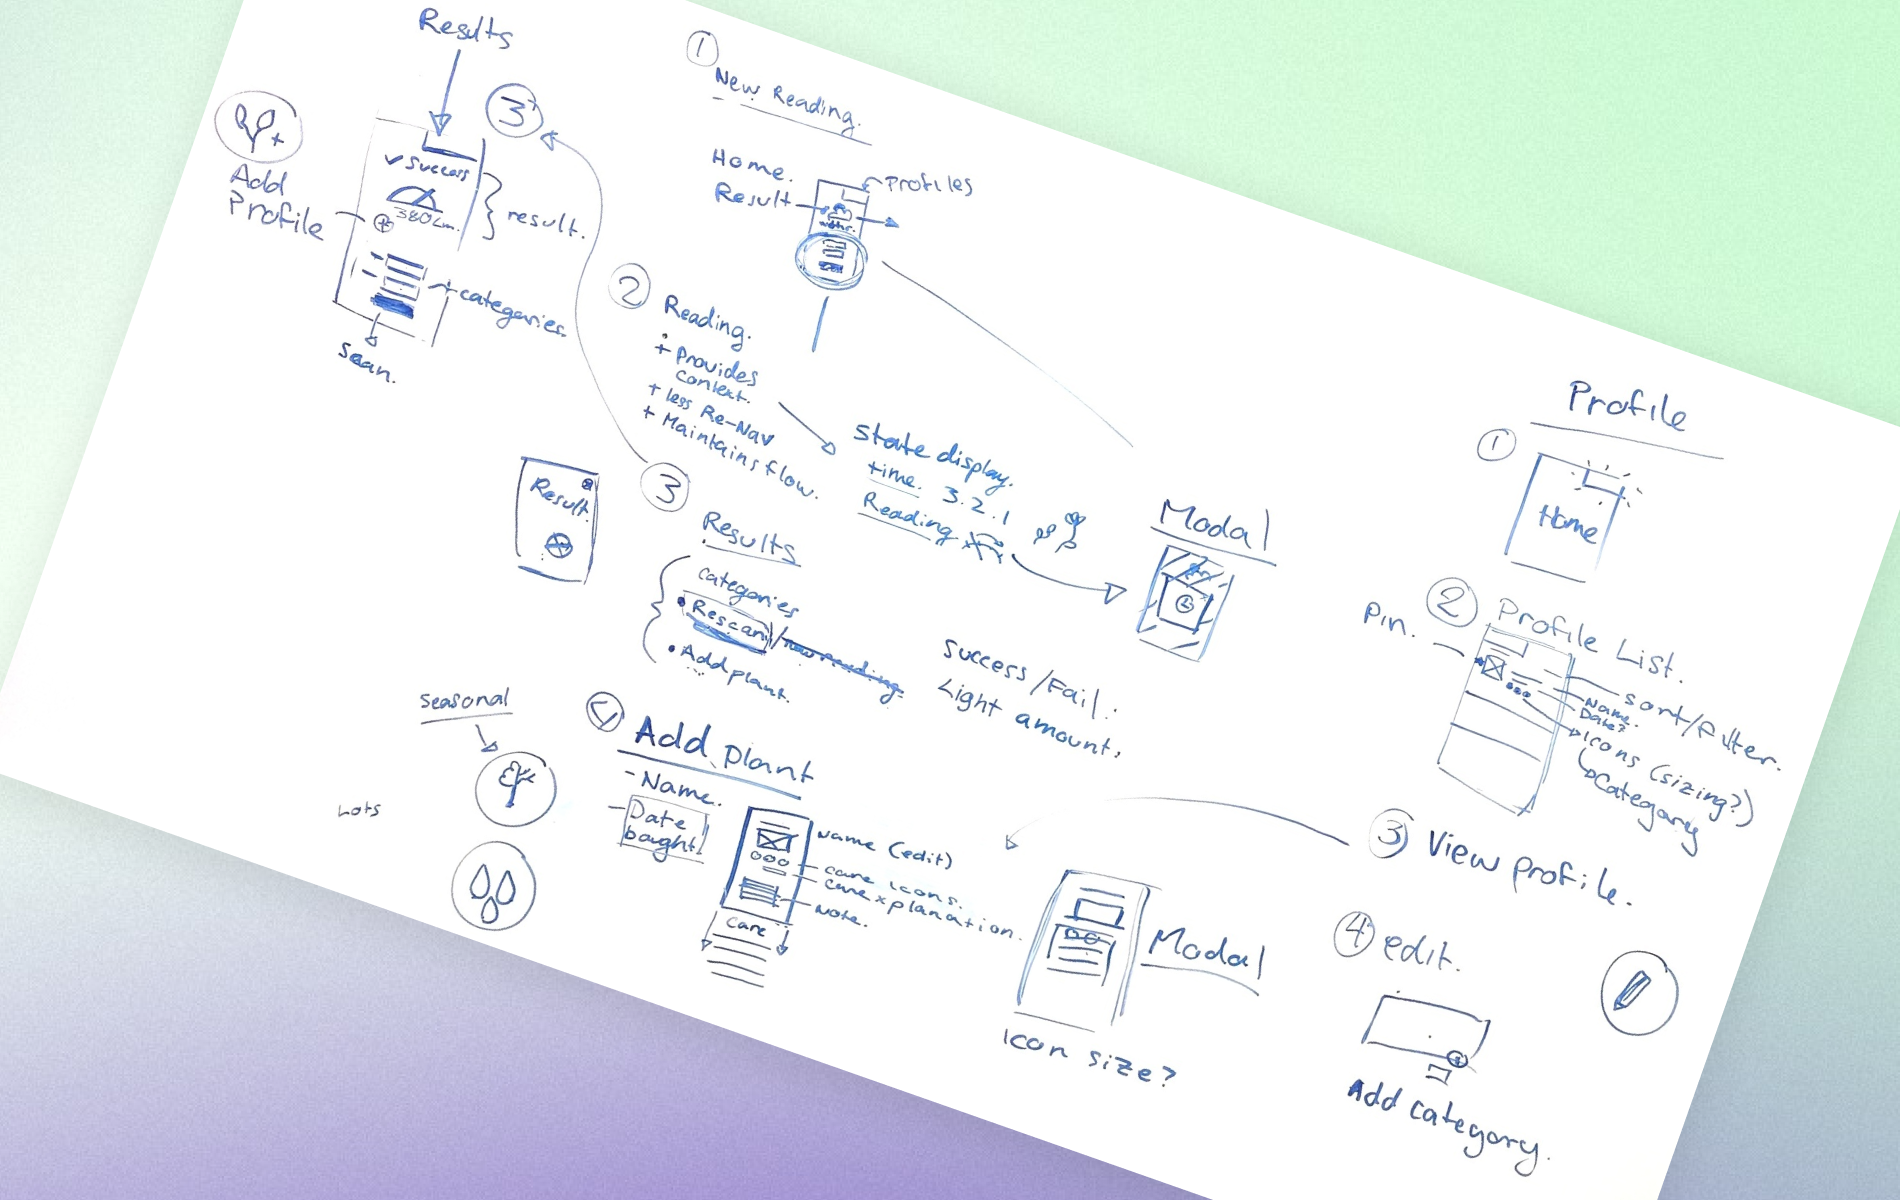 Results
3+
Add
Profile
✓ Success
380 Lm.
result.
+ categories.
Scan.
1
New Reading.
Home.
Result
Profiles
2
Reading.
+ Provides
context.
+ less Re-Nav
+ Maintains flow.
State display.
time. 3.2.1
Reading
Modal
Result.
3
Results
categories
• Rescan / new reading.
• Add plant.
Success / Fail.
Light amount.
Seasonal
Lots
4
Add plant
- Name.
- Date
bought
Name (edit)
care icons.
care explanation.
Note.
Care
Modal
Icon size?
Profile
1
Home
2
Profile List.
Pin.
sort/filter.
Name.
Date?
Icons (sizing?)
Category
3 View profile.
4 edit.
Add category.